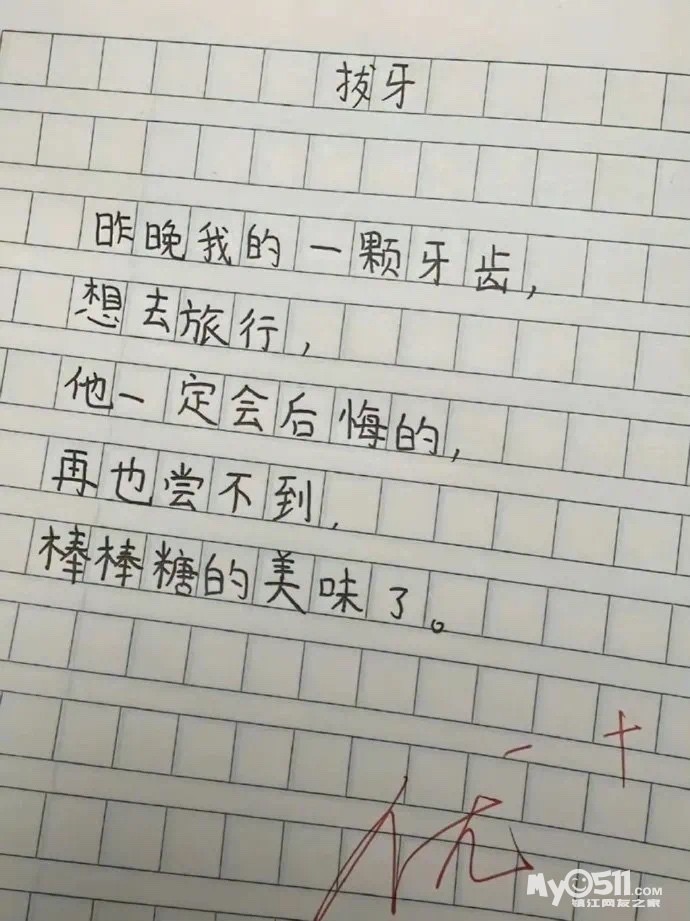 拔牙
昨晚我的一颗牙齿，
想去旅行，
他一定会后悔的，
再也尝不到，
棒棒糖的美味了。
优+
My0511.com
镇江网友之家